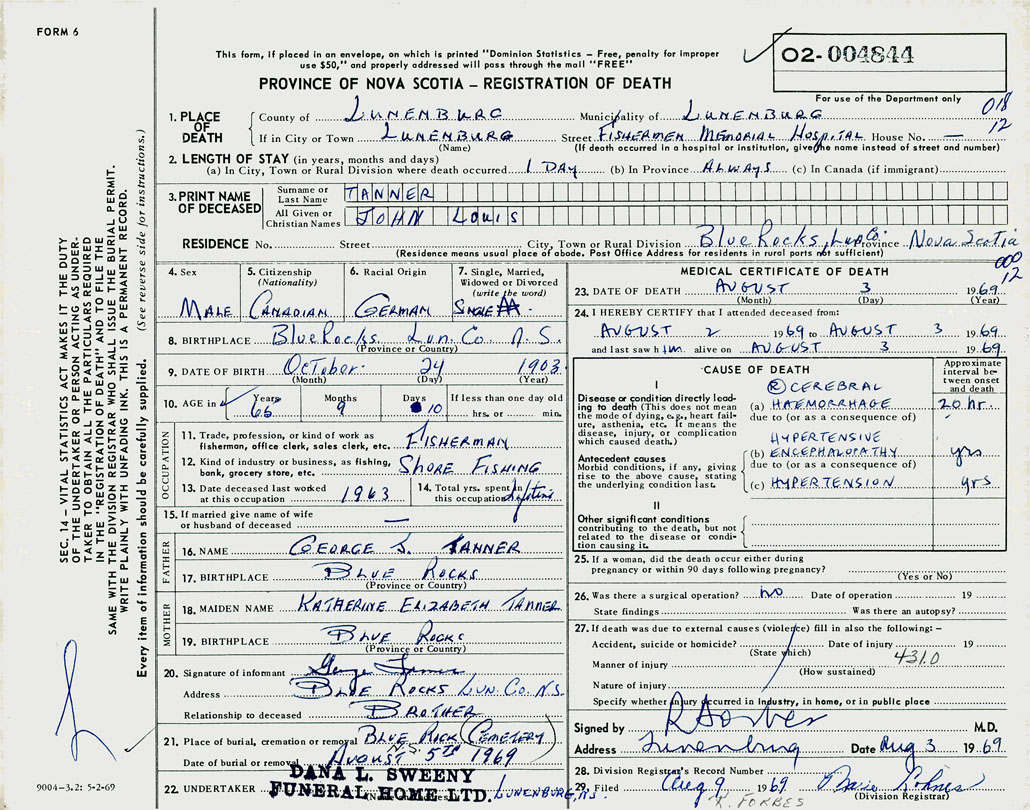 FORM 6
This form, if placed in an envelope, on which is printed "Dominion Statistics – Free, penalty for improper
use $50," and properly addressed will pass through the mail "FREE"
PROVINCE OF NOVA SCOTIA – REGISTRATION OF DEATH
02-004844
For use of the Department only
018
12
1. PLACE OF DEATH
County of LUNENBURG Municipality of LUNENBURG
If in City or Town LUNENBURG Street FISHERMEN MEMORIAL HOSPITAL House No. —
(Name) (If death occurred in a hospital or institution, give the name instead of street and number)
2. LENGTH OF STAY (in years, months and days)
(a) In City, Town or Rural Division where death occurred 1 DAY (b) In Province ALWAYS (c) In Canada (if immigrant)
3. PRINT NAME OF DECEASED
Surname or Last Name TANNER
All Given or Christian Names JOHN LOUIS
RESIDENCE No. Street City, Town or Rural Division Blue Rocks, Lun Co. Province Nova Scotia
(Residence means usual place of abode. Post Office Address for residents in rural parts not sufficient)
000
12
4. Sex MALE
5. Citizenship (Nationality) CANADIAN
6. Racial Origin GERMAN
7. Single, Married, Widowed or Divorced (write the word) SINGLE
8. BIRTHPLACE Blue Rocks Lun. Co N.S.
(Province or Country)
9. DATE OF BIRTH October 24 1903
(Month) (Day) (Year)
10. AGE in Years 65 Months 9 Days 10 If less than one day old
hrs. or min.
OCCUPATION
11. Trade, profession, or kind of work as
fisherman, office clerk, sales clerk, etc. FISHERMAN
12. Kind of industry or business, as fishing,
bank, grocery store, etc. SHORE FISHING
13. Date deceased last worked
at this occupation 1963
14. Total yrs. spent in
this occupation lifetime
15. If married give name of wife
or husband of deceased —
FATHER
16. NAME GEORGE S. TANNER
17. BIRTHPLACE BLUE ROCKS
(Province or Country)
MOTHER
18. MAIDEN NAME KATHERINE ELIZABETH TANNER
19. BIRTHPLACE BLUE ROCKS
(Province or Country)
20. Signature of informant George Tanner
Address BLUE ROCKS LUN. CO. N.S.
Relationship to deceased BROTHER
21. Place of burial, cremation or removal BLUE ROCK (CEMETERY) N.S.
Date of burial or removal AUGUST 5TH 1969
22. UNDERTAKER DANA L. SWEENY
FUNERAL HOME LTD. LUNENBURG, N.S.
MEDICAL CERTIFICATE OF DEATH
23. DATE OF DEATH AUGUST 3 1969
(Month) (Day) (Year)
24. I HEREBY CERTIFY that I attended deceased from:
AUGUST 2 1969 to AUGUST 3 1969
and last saw him alive on AUGUST 3 1969
CAUSE OF DEATH
Approximate interval between onset and death
I
Disease or condition directly leading to death (This does not mean
the mode of dying, e.g., heart failure, asthenia, etc. It means the
disease, injury, or complication
which caused death.)
(a) (R) CEREBRAL HAEMORRHAGE 20 hr.
due to (or as a consequence of)
Antecedent causes
Morbid conditions, if any, giving
rise to the above cause, stating
the underlying condition last.
(b) HYPERTENSIVE ENCEPHALOPATHY yrs
due to (or as a consequence of)
(c) HYPERTENSION yrs
II
Other significant conditions
contributing to the death, but not
related to the disease or condition causing it.
25. If a woman, did the death occur either during
pregnancy or within 90 days following pregnancy?
(Yes or No)
26. Was there a surgical operation? no Date of operation 19
State findings Was there an autopsy?
27. If death was due to external causes (violence) fill in also the following: –
Accident, suicide or homicide? Date of injury 19
(State which) 431.0
Manner of injury
(How sustained)
Nature of injury
Specify whether injury occurred in Industry, in home, or in public place
Signed by M.D.
Address Lunenburg Date Aug 3 1969
28. Division Registrar's Record Number
29. Filed Aug 9 1969
(Division Registrar)
R. FORBES
SEC. 14 – VITAL STATISTICS ACT MAKES IT THE DUTY
OF THE UNDERTAKER OR PERSON ACTING AS UNDER-
TAKER TO OBTAIN ALL THE PARTICULARS REQUIRED
IN THE "REGISTRATION OF DEATH" AND TO FILE THE
SAME WITH THE DIVISION REGISTRAR WHO SHALL ISSUE THE BURIAL PERMIT.
WRITE PLAINLY WITH UNFADING INK. THIS IS A PERMANENT RECORD.
Every item of information should be carefully supplied. (See reverse side for instructions.)
9004–3.2: 5-2-69